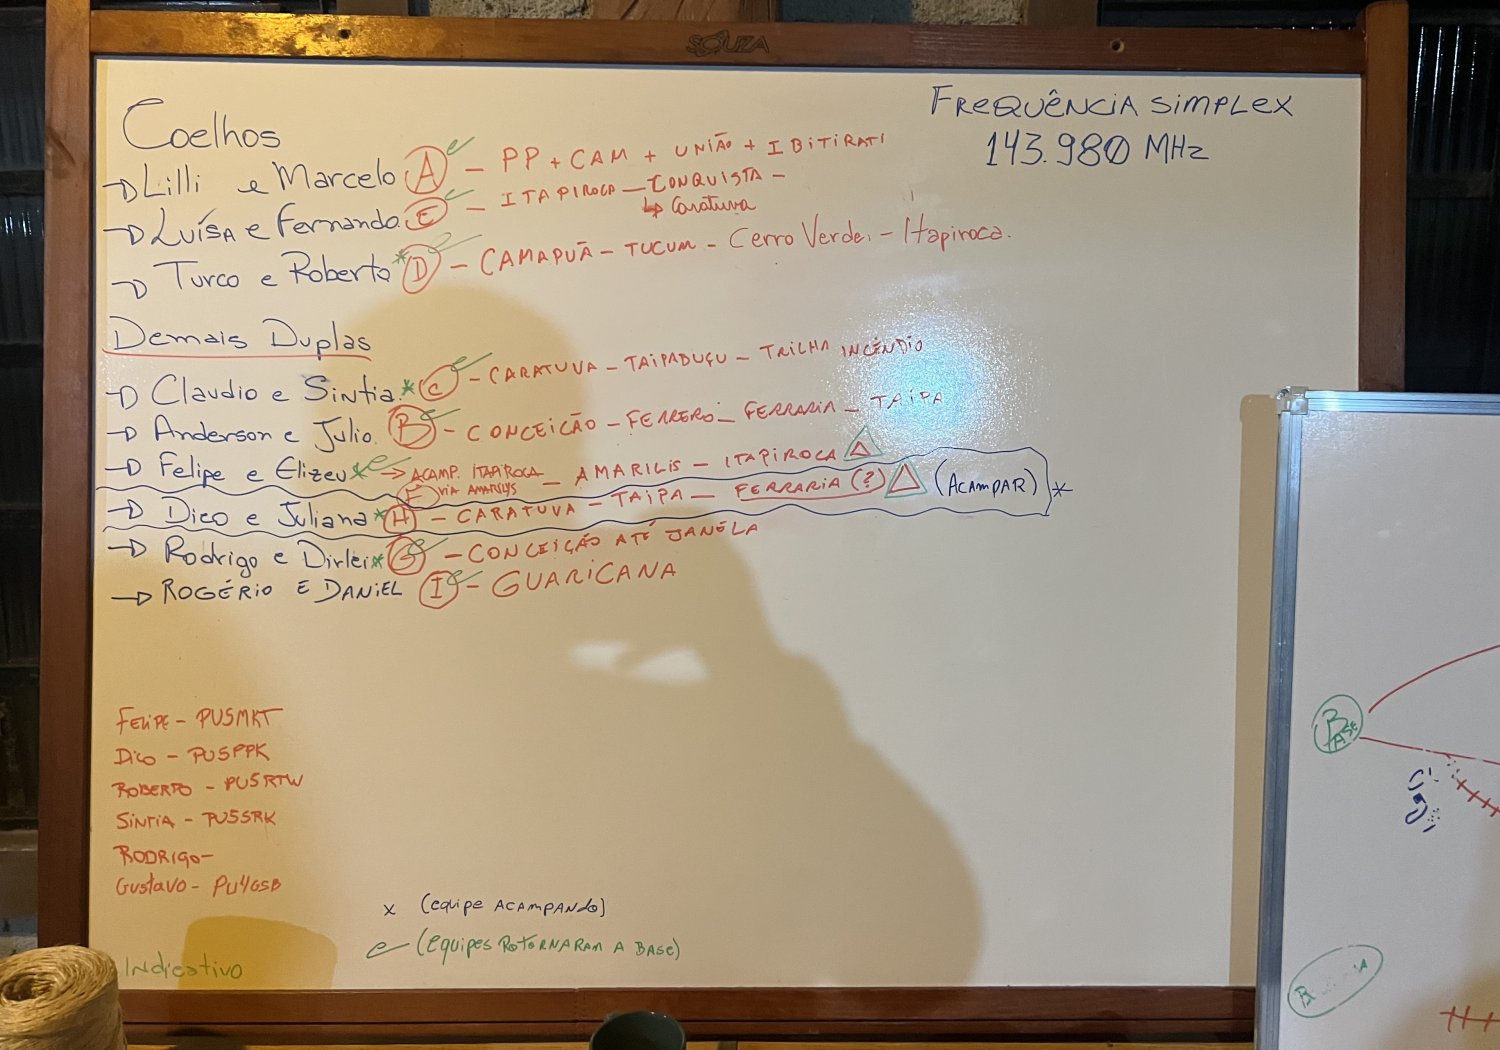 SOUZA
FREQUÊNCIA SIMPLEX
143.980 MHz
Coelhos
→ Lilli e Marcelo A - PP + CAM + UNIÃO + IBITIRATI
→ Luísa e Fernando. E - ITAPIROCA - CONQUISTA -
↳ Caratuva
→ Turco e Roberto * D - CAMAPUÃ - TUCUM - Cerro Verde. - Itapiroca.
Demais Duplas
→ Claudio e Sintia. * C - CARATUVA - TAIPABUÇU - TRILHA INCÊNDIO
→ Anderson e Julio. B - CONCEIÇÃO - FERRERO - FERRARIA - TAIPA
→ Felipe e Elizeu * → ACAMP. ITAPIROCA - AMARILIS - ITAPIROCA
F VIA AMARILYS
→ Dico e Juliana * H - CARATUVA - TAIPA - FERRARIA (?) (ACAMPAR) *
→ Rodrigo e Dirlei * G - CONCEIÇÃO ATÉ JANELA
→ ROGÉRIO E DANIEL I - GUARICANA
FELIPE - PU5MKT
DICO - PU5PPK
ROBERTO - PU5RTW
SINTIA - PU5SRK
RODRIGO -
GUSTAVO - PU4GSB
x (equipe ACAMPANDO)
(EQUIPES ROTORNARAM A BASE)
Indicativo
BASE